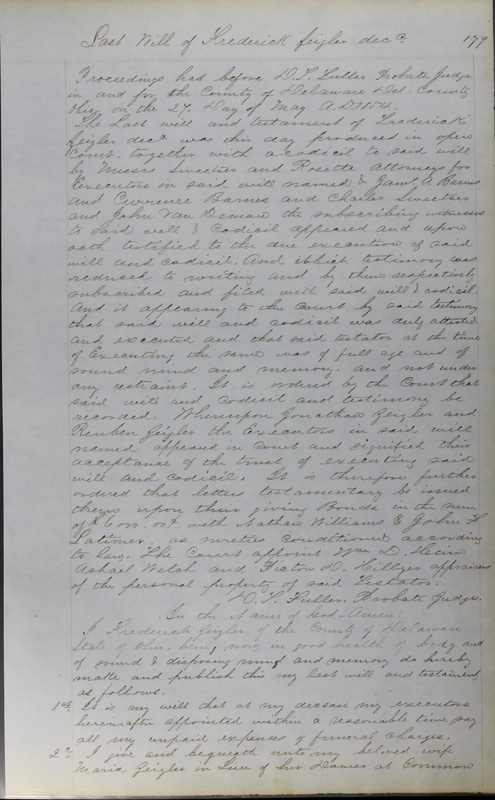 Last Will of Frederick Zeigler decd.
179
Proceedings had before D. T. Fuller Probate Judge
in and for the County of Delaware Del. County
Ohio on the 27. Day of May A.D. 1854.
The Last will and testament of Frederick
Zeigler decd was this day produced in open
Court. together with a codicil to said will
by Messrs Sweetser and Rosette Attorneys for
Executors in said will named & A Barns
and Cwrence Barnes and Charles Sweetser
and John Van Deman the subscribing witnesses
to said will & Codicil appeared and upon
oath testified to the due execution of said
will and codicil. And which testimony was
reduced to writing and by them respectively
subscribed and filed with said will & codicil.
And it appearing to the Court by said testimony
that said will and codicil was duly attested
and executed and that said testator at the time
of Executing the same was of full age and of
sound mind and memory. and not under
any restraint. It is ordered by the Court that
said will and Codicil and testimony be
recorded. Whereupon Jonathan Zeigler and
Reuben Zeigler the Executors in said will
named appeared in Court and signified their
acceptance of the trust of executing said
will and codicil. It is therefore further
ordered that letters testamentary be issued
thereon upon their giving Bonds in the sum
of with Nathan Williams & John H
Latimer. as sureties conditioned according
to law. The Court appoint Wm D. Heim
Ashael Welch and Victor D. Hillyer appraisers
of the personal property of said Testator.
D. T. Fuller Probate Judge.
In the Name of God-Amen:
I Frederick Zeigler of the County of Delaware
State of Ohio. being now in good health of body and
of sound & disposing mind and memory do hereby
make and publish this my last will and testament
as follows.
1st. It is my will that at my decease my executors
hereinafter appointed within a reasonable time pay
all my unpaid expenses of funeral charges.
2d. I give and bequeath unto my beloved wife
Maria Zeigler in Lieu of her Dower at Common